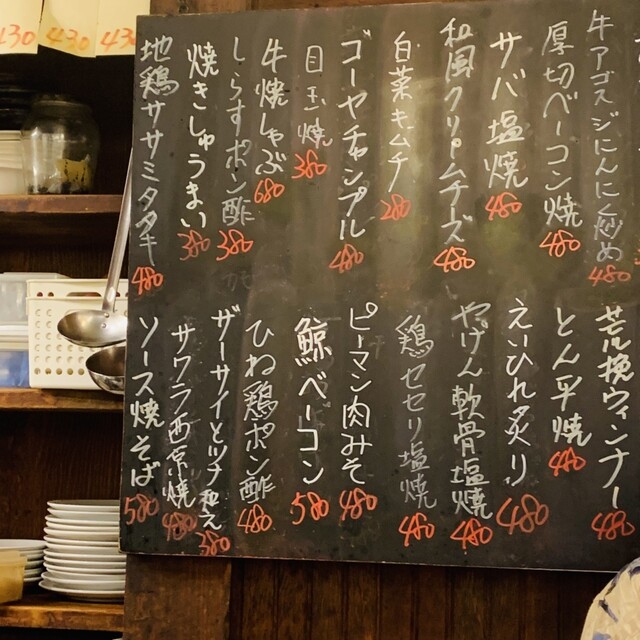 牛アゴスジにんにく炒め 480
厚切ベーコン焼 480
サバ塩焼 480
和風クリームチーズ 480
白菜キムチ 280
ゴーヤチャンプル 480
目玉焼 380
牛焼しゃぶ 680
しらすポン酢 380
焼きしゅうまい 380
地鶏ササミタタキ 480
荒挽ウィンナー 480
とん平焼 480
えいひれ炙り 480
やげん軟骨塩焼 480
鶏セセリ塩焼 480
ピーマン肉みそ 480
鯨ベーコン 580
ひね鶏ポン酢 480
ザーサイとツナ和え 380
サワラ西京焼 480
ソース焼そば 580
430
430